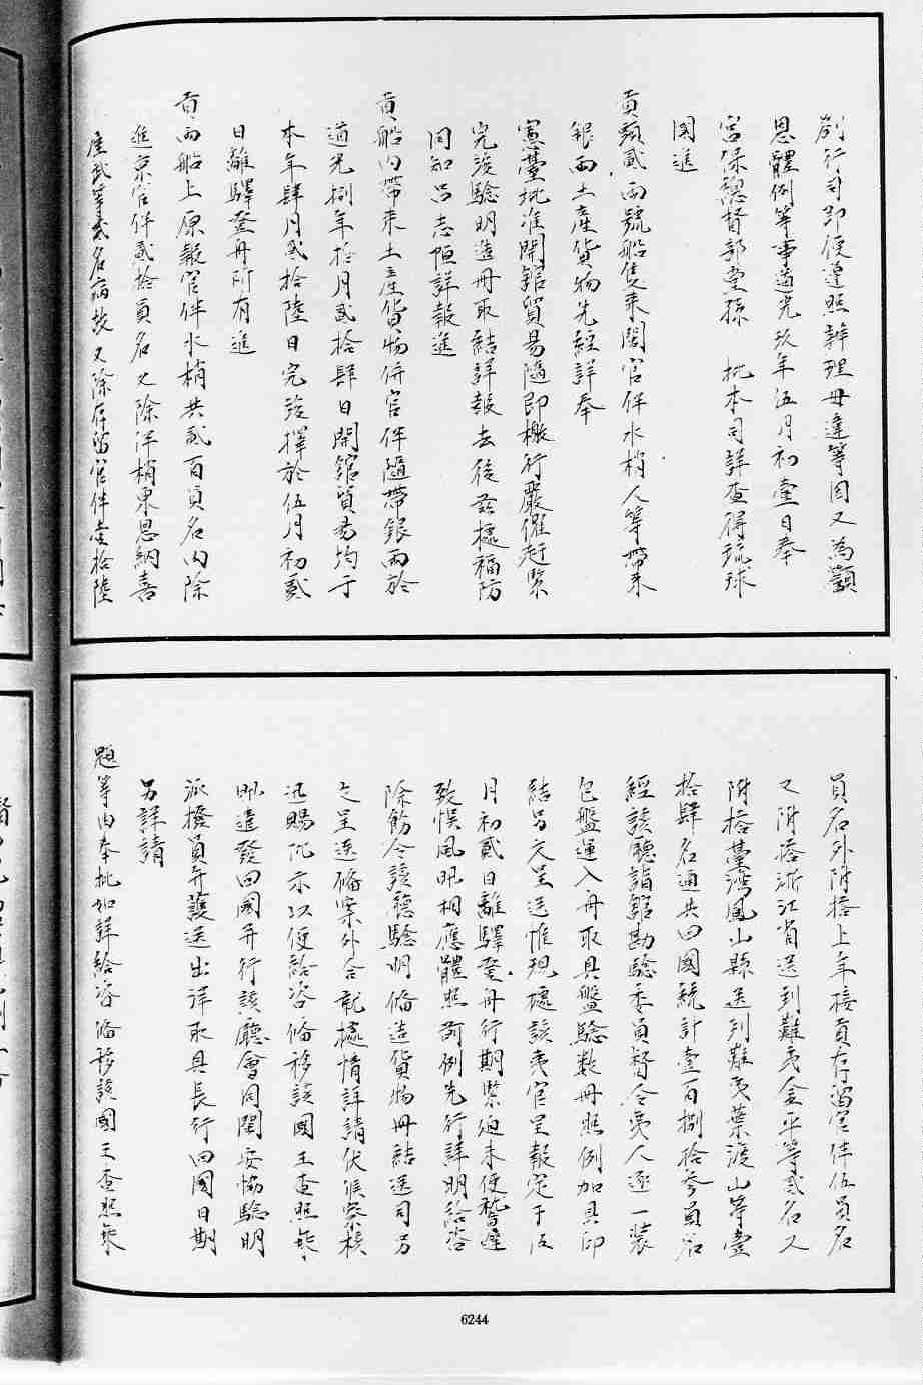 劄行司即便遵照辦理毋違等因又為顴
恩體例等事道光玖年伍月初壹日奉
宮保總督部堂孫 批本司詳查得琉球
國進
貢頭貳兩號船隻來閩官伴水梢人等帶來
銀兩土產貨物先經詳奉
憲臺批准開館貿易隨即檄行嚴催赶緊
完竣驗明造冊取結詳報去後茲據福防
同知呂志恒詳報進
貢船內帶來土產貨物併官伴隨帶銀兩於
道光捌年拾月貳拾肆日開館貿易均于
本年肆月貳拾陸日完竣擇於伍月初貳
日離驛登舟所有進
貢兩船上原報官伴水梢共貳百員名內除
進京官伴貳拾員名又除洋梢東恩納喜
屋武等貳名病故又除存留官伴壹拾陸
員名外附搭上年接貢存留官伴伍員名
又附搭浙江省送到難夷金平等貳名又
附搭臺灣鳳山縣送到難夷葉渡山等壹
拾肆名通共回國統計壹百捌拾參員名
經該廳詣館勘驗委員督令夷人逐一裝
包盤運入舟取具盤驗數冊照例加具印
結另文呈送惟現據該夷官呈報定于伍
月初貳日離驛登舟行期緊迫未便稽遲
致悮風帆相應體照前例先行詳明給咨
除飭令該廳驗明備造貨物冊結送司另
文呈送備案外合就據情詳請伏候察核
迅賜批示以便給咨備移該國王查照乘
帆遣發回國并行該廳會同閩安協驗明
派撥員弁護送出洋取具長行回國日期
另詳請
題等由奉批如詳給咨備移該國王查照乘
6244